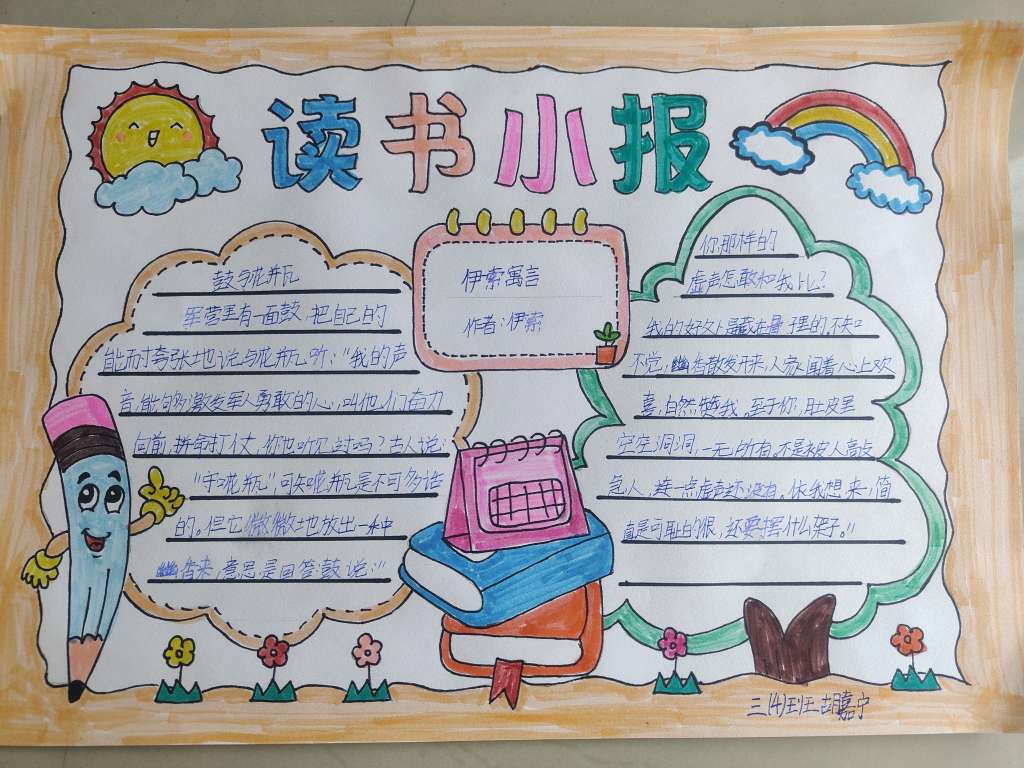 读书小报
伊索寓言
作者:伊索
鼓与花瓶
军营里有一面鼓,把自己的
能耐夸张地说与花瓶听:“我的声
音,能够激发军人勇敢的心,叫他们奋力
向前,拼命打仗,你也听见过吗?古人说:
“守口如瓶”,可知瓶是不可多话
的。但它微微地放出一种
幽香来,意思是回答鼓说:“
你那样的
虚声怎敢和我比?
我的好处是藏在骨子里的,不知
不觉,幽香散发开来,人家闻着心上欢
喜,自然赞我。至于你,肚皮里
空空洞洞,一无所有。不是被人高点
急人,连一点虚声还没有。依我想来,简
直是可耻的很,还要摆什么架子。”
三(4)班 胡嘉宁